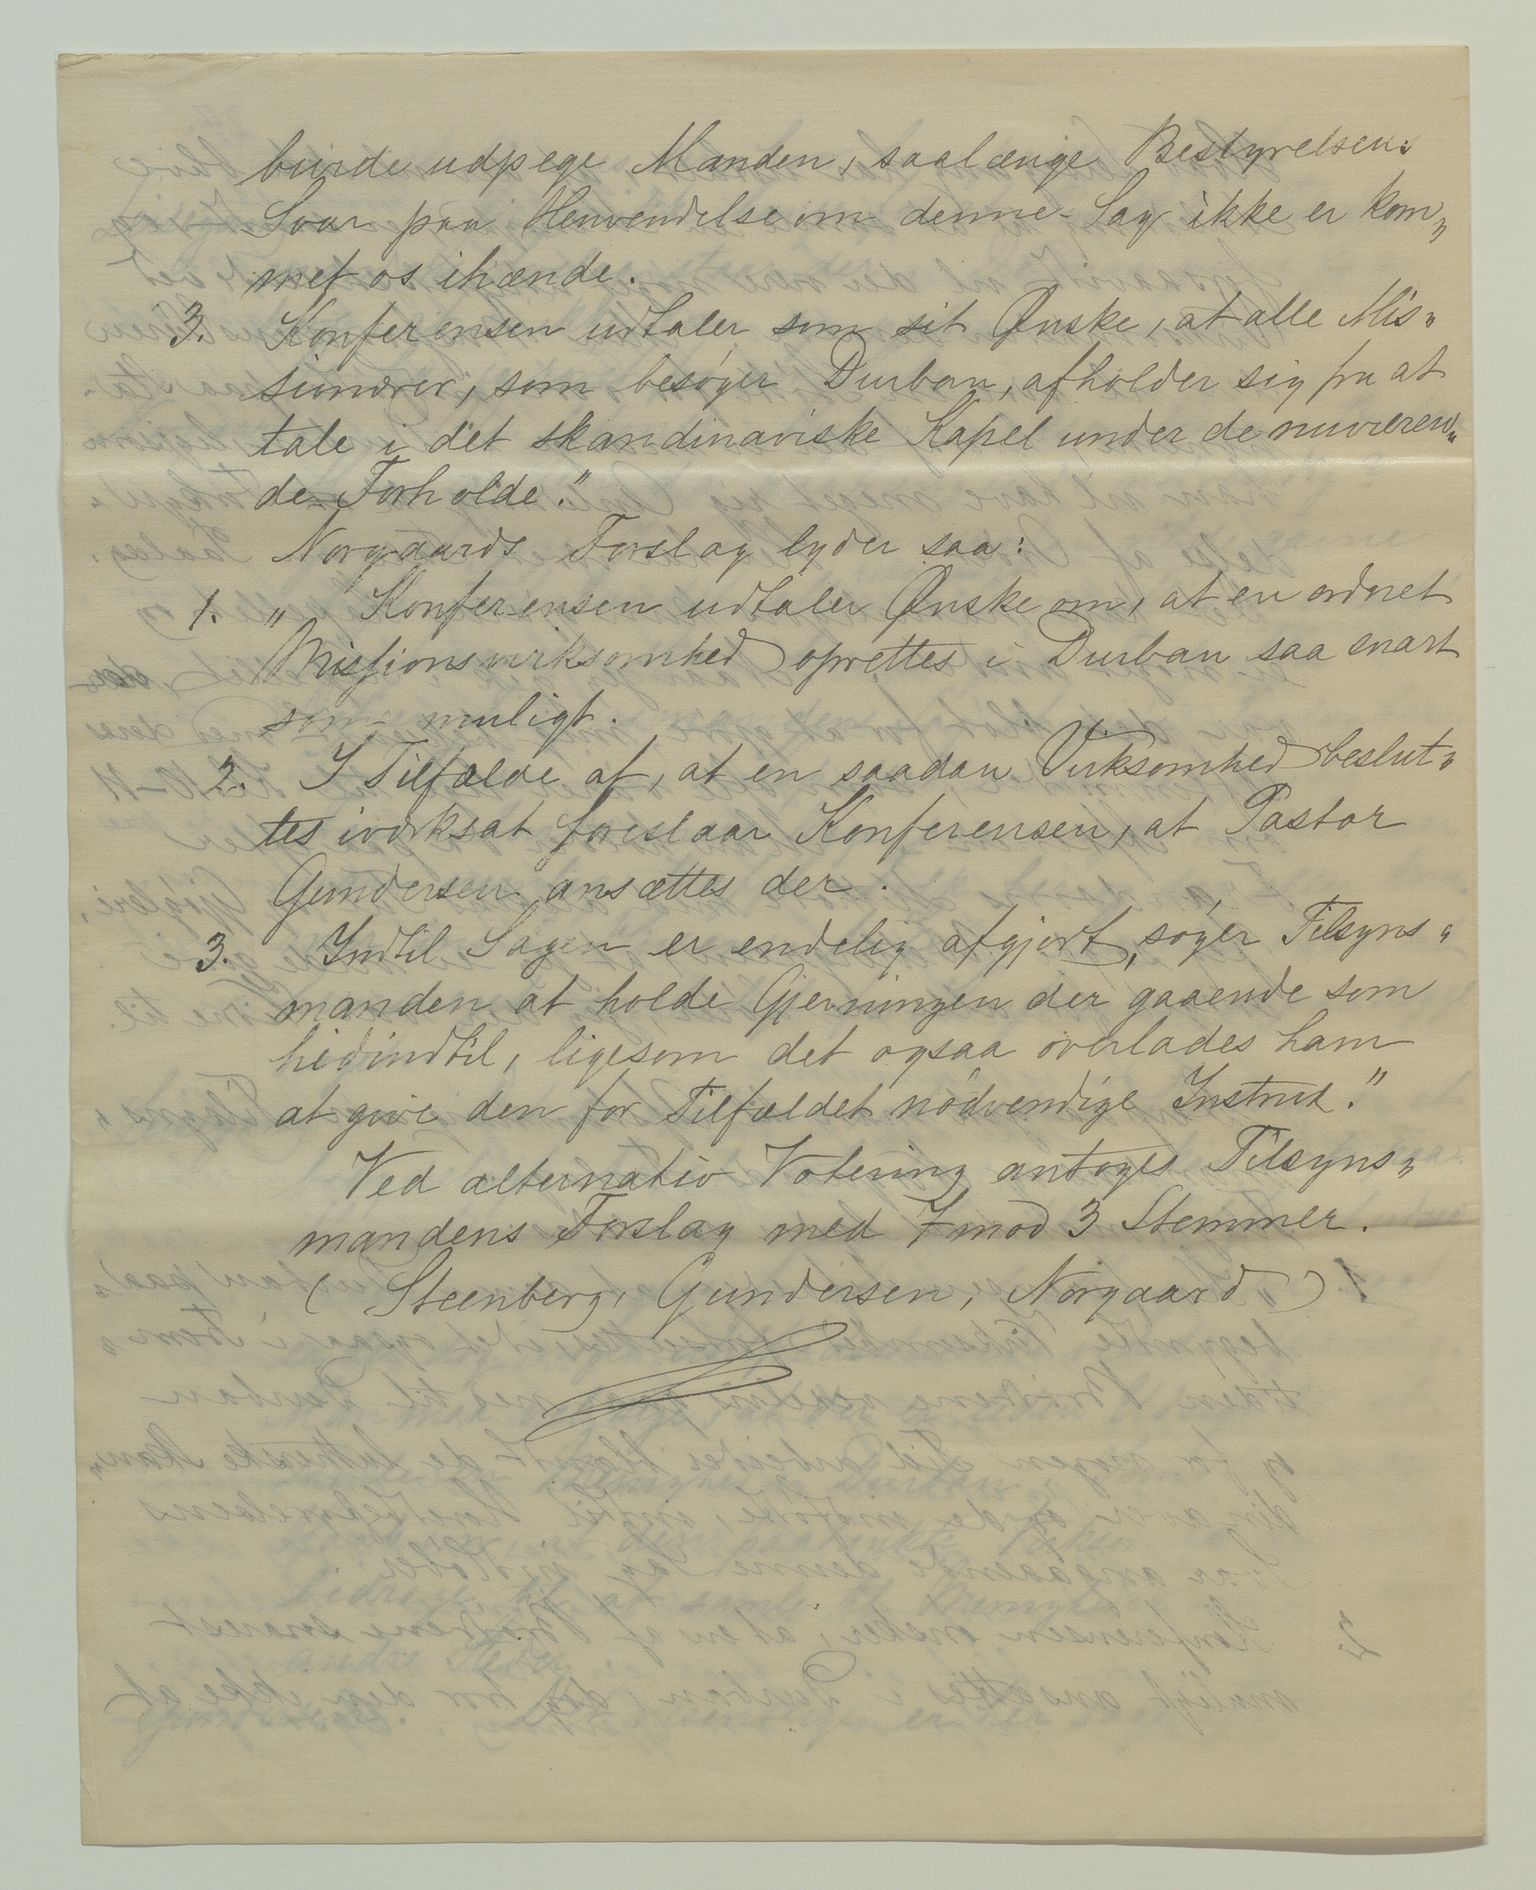 burde udpege Manden, saalænge Bestyrelsens
Svar paa Henvendelse om denne Sag ikke er kom„
met os ihænde.
3. Konferensen udtaler som sit Ønske, at alle Mis„
sionærer, som besøger Durban, afholder sig fra at
tale i det skandinaviske Kapel under de nuværen„
de Forholde."
Norgaards Forslag lyder saa:
1. „ Konferensen udtaler Ønske om, at en ordnet
Missionsvirksomhed oprettes i Durban saa snart
som muligt.
2. I Tilfælde af, at en saadan Virksomhed beslut„
tes iværksat foreslaar Konferensen, at Pastor
Gundersen ansættes der.
3. Indtil Sagen er endelig afgjort, søger Tilsyns„
manden at holde Gjerningen der gaaende som
hidindtil, ligesom det ogsaa overlades ham
at give den for Tilfældet nødvendige Instrux."
Ved alternativ Votering antoges Tilsyns„
mandens Forslag med 7 mod 3 Stemmer.
( Steenberg, Gundersen, Norgaard )